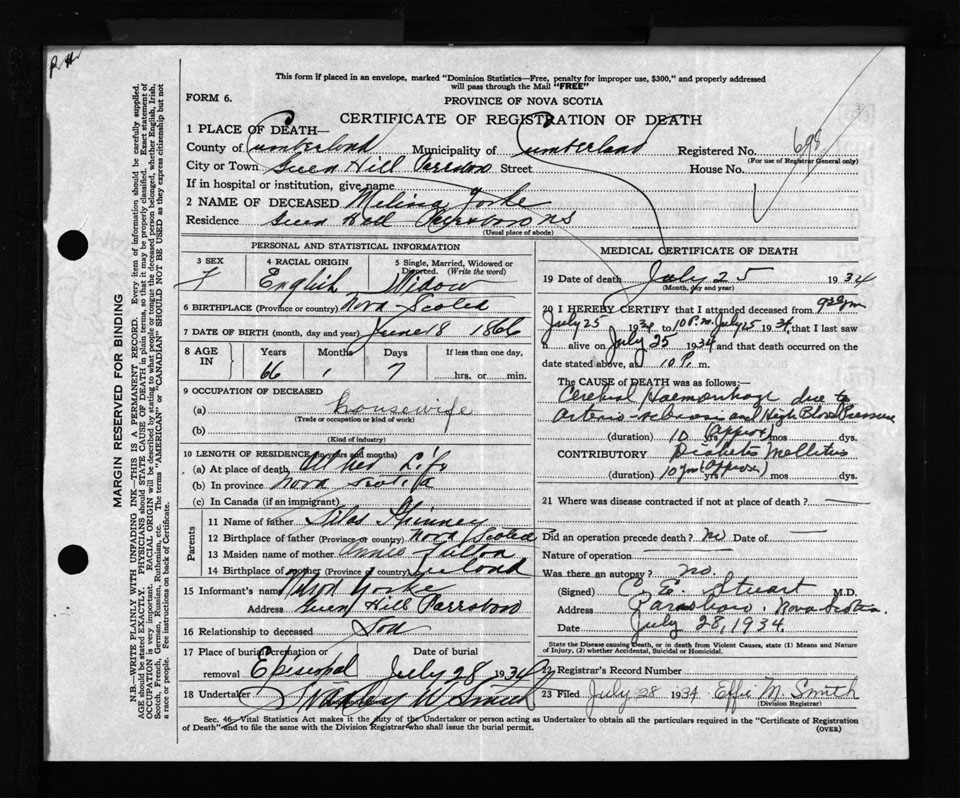 This form if placed in an envelope, marked "Dominion Statistics—Free, penalty for improper use, $300," and properly addressed
will pass through the Mail "FREE"
FORM 6.
PROVINCE OF NOVA SCOTIA
CERTIFICATE OF REGISTRATION OF DEATH
1 PLACE OF DEATH—
County of Cumberland Municipality of Cumberland Registered No. 698
(For use of Registrar General only)
City or Town Green Hill Parrsboro Street House No.
If in hospital or institution, give name
2 NAME OF DECEASED Melina Yorke
Residence Green Hill Parrsboro NS
(Usual place of abode)
PERSONAL AND STATISTICAL INFORMATION
3 SEX 4 RACIAL ORIGIN 5 Single, Married, Widowed or Divorced. (Write the word)
F English Widow
6 BIRTHPLACE (Province or country) Nova Scotia
7 DATE OF BIRTH (month, day and year) June 18 1866
8 AGE IN Years Months Days If less than one day,
66 1 7 hrs. or min.
9 OCCUPATION OF DECEASED
(a) housewife
(Trade or occupation or kind of work)
(b)
(Kind of industry)
10 LENGTH OF RESIDENCE (in years and months)
(a) At place of death All her Life
(b) In province Nova Scotia
(c) In Canada (if an immigrant)
Parents
11 Name of father Silas Spinney
12 Birthplace of father (Province or country) Nova Scotia
13 Maiden name of mother Annie Fulton
14 Birthplace of mother (Province or country)
15 Informant's name Yorke
Address Green Hill Parrsboro
16 Relationship to deceased Son
17 Place of burial, cremation or removal Episcopal Date of burial July 28 1934
18 Undertaker W Smith
MEDICAL CERTIFICATE OF DEATH
19 Date of death July 25 1934
(Month, day and year)
20 I HEREBY CERTIFY that I attended deceased from
July 25 1934 to 10 P.m. July 25 1934, that I last saw
h alive on July 25 1934 and that death occurred on the
date stated above, at 10 P. m.
The CAUSE of DEATH was as follows:—
Cerebral Haemorrhage due to
Arterio-sclerosis and High Blood Pressure
(duration) 10 yrs (approx) mos dys.
CONTRIBUTORY Diabetes Mellitus
(duration) 10 yrs (approx) mos dys.
21 Where was disease contracted if not at place of death?
Did an operation precede death? no Date of
Nature of operation
Was there an autopsy? no.
(Signed) C. E. Stuart M.D.
Address Parrsboro, Nova Scotia.
Date July 28, 1934.
State the Disease causing Death, or in death from Violent Causes, state (1) Means and Nature of Injury, (2) whether Accidental, Suicidal or Homicidal.
22 Registrar's Record Number
23 Filed July 28 1934 Effie M. Smith
(Division Registrar)
Sec. 46—Vital Statistics Act makes it the duty of the Undertaker or person acting as Undertaker to obtain all the particulars required in the "Certificate of Registration
of Death" and to file the same with the Division Registrar who shall issue the burial permit. (OVER)
MARGIN RESERVED FOR BINDING
N.B.—WRITE PLAINLY WITH UNFADING INK—THIS IS A PERMANENT RECORD. Every item of information should be carefully supplied.
AGE should be stated EXACTLY. PHYSICIANS should STATE CAUSE OF DEATH in plain terms, so that it may be properly classified. Exact statement of
OCCUPATION is very important. RACIAL ORIGIN will be described by stating to what people or tongue the deceased person belonged, whether English, Irish,
Scotch, French, German, Russian, Ruthenian, etc. The terms "AMERICAN" or "CANADIAN" SHOULD NOT BE USED as they express citizenship but not
a race or people. See instructions on back of Certificate.